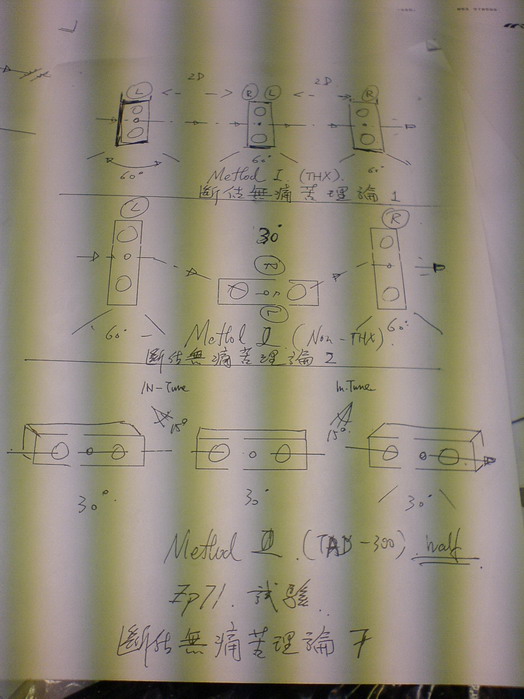 L 2D R L 2D R
60° 60° 60°
Method I (THX)
斷估無痛苦理論 1
L 30° R
60° 60°
Method II (Non-THX)
斷估無痛苦理論 2
IN-Tune In.Tune
15° 15°
30° 30° 30°
Method III (TAD-300). half
試驗
斷估無痛苦理論